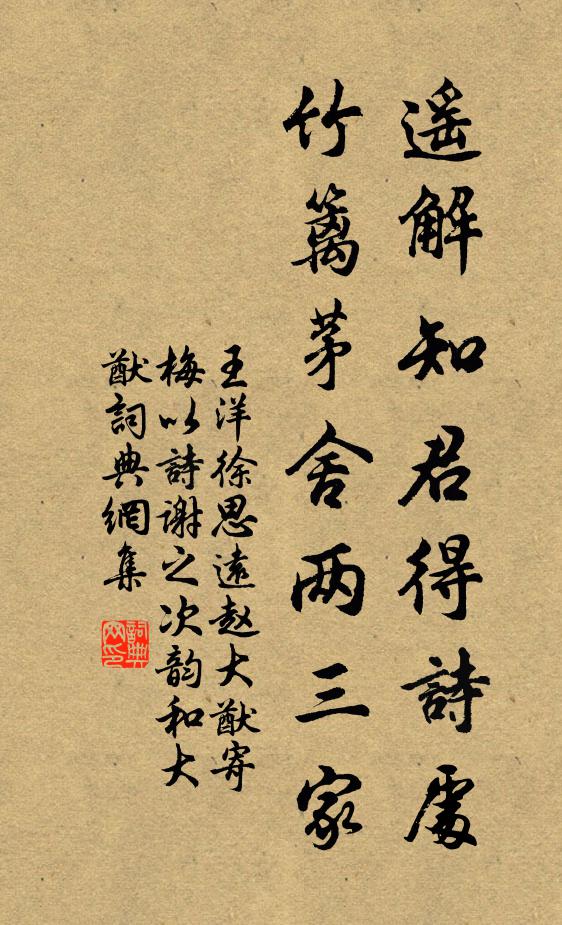 遥解知君得詩處
竹籬茅舍两三家
王洋徐思遠趙大猷寄
梅以詩謝之次韵和大
猷詞典網集
詞典
网印